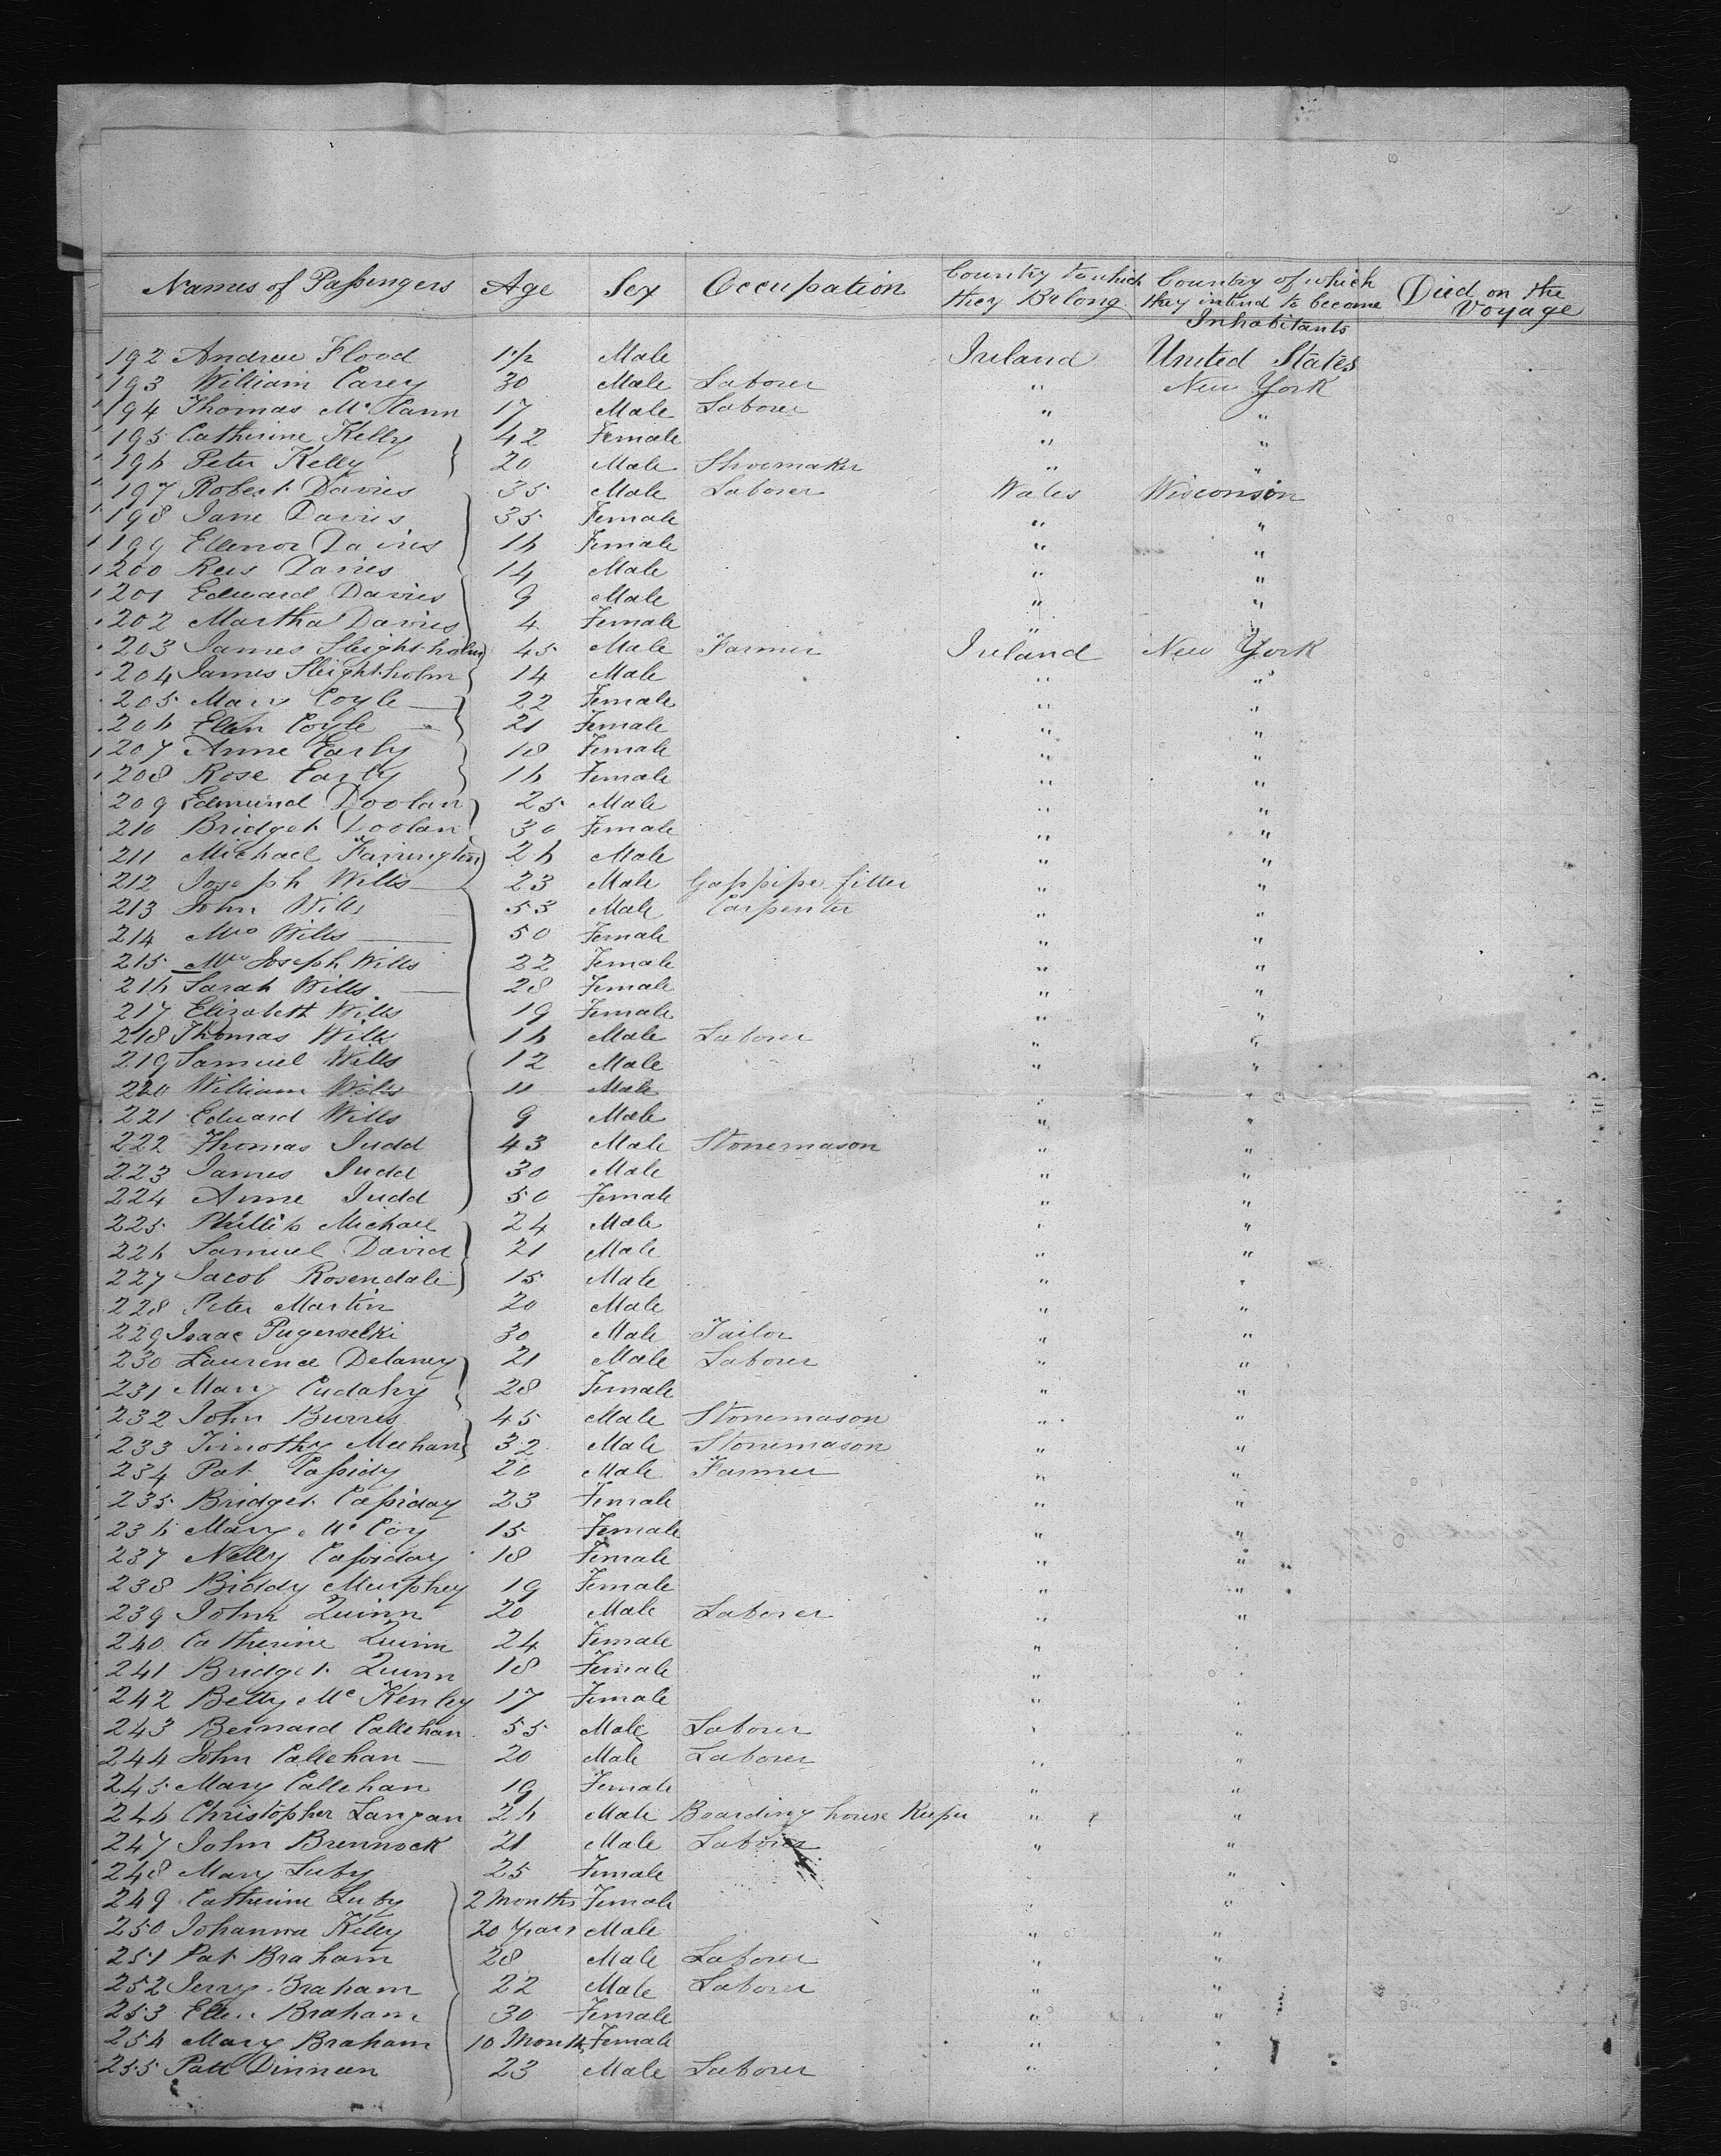 Names of Passengers Age Sex Occupation Country to which they Belong Country of which they intend to become Inhabitants Died on the Voyage
192 Andrew Flood 1 1/2 Male Ireland United States
193 William Carey 30 Male Laborer " New York
194 Thomas McCann 17 Male Laborer " "
195 Catherine Kelly 42 Female " "
196 Peter Kelly 20 Male Shoemaker " "
197 Robert Davies 35 Male Laborer Wales Wisconsin
198 Jane Davies 35 Female " "
199 Ellenor Davies 16 Female " "
200 Rees Davies 14 Male " "
201 Edward Davies 9 Male " "
202 Martha Davies 4 Female " "
203 James Sleightholm 45 Male Farmer Ireland New York
204 James Sleightholm 14 Male " "
205 Mary Coyle 22 Female " "
206 Ellen Coyle 21 Female " "
207 Anne Early 18 Female " "
208 Rose Early 16 Female " "
209 Edmund Doolan 25 Male " "
210 Bridget Doolan 30 Female " "
211 Michael Farrington 26 Male " "
212 Joseph Wills 23 Male Gaspipe fitter " "
213 John Wills 53 Male Carpenter " "
214 Mrs Wills 50 Female " "
215 Mrs Joseph Wills 22 Female " "
216 Sarah Wills 28 Female " "
217 Elizabeth Wills 19 Female " "
218 Thomas Wills 16 Male Laborer " "
219 Samuel Wills 12 Male " "
220 William Wills 11 Male " "
221 Edward Wills 9 Male " "
222 Thomas Judd 43 Male Stonemason " "
223 James Judd 30 Male " "
224 Anne Judd 50 Female " "
225 Phillip Michael 24 Male " "
226 Samuel David 21 Male " "
227 Jacob Rosendale 15 Male " "
228 Peter Martin 20 Male " "
229 Isaac Pugerselki 30 Male Tailor " "
230 Laurence Delaney 21 Male Laborer " "
231 Mary Cudahy 28 Female " "
232 John Burres 45 Male Stonemason " "
233 Timothy Meehan 32 Male Stonemason " "
234 Pat Cassidy 20 Male Farmer " "
235 Bridget Cassiday 23 Female " "
236 Mary McCoy 15 Female " "
237 Nelly Cassiday 18 Female " "
238 Biddy Murphey 19 Female " "
239 John Quinn 20 Male Laborer " "
240 Catherine Quinn 24 Female " "
241 Bridget Quinn 18 Female "
242 Betty McKenley 17 Female " "
243 Bernard Callehan 55 Male Laborer " "
244 John Callehan 20 Male Laborer " "
245 Mary Callehan 19 Female " "
246 Christopher Langan 26 Male Boarding house Keeper " "
247 John Brennock 21 Male Laborer " "
248 Mary Luby 25 Female "
249 Catherine Luby 2 Months Female "
250 Johanna Kelly 20 Years Male " "
251 Pat Braham 28 Male Laborer " "
252 Jerry Braham 22 Male Laborer " "
253 Ellen Braham 30 Female " "
254 Mary Braham 10 Months Female " "
255 Patt Dinneen 23 Male Laborer " "